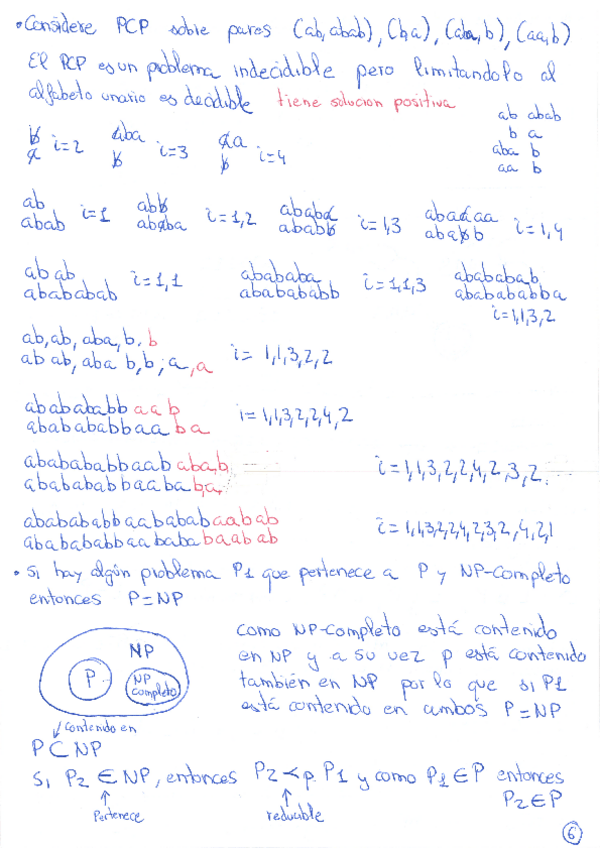 • Considere PCP sobre pares (ab, abab), (b, a), (aba, b), (aa, b)
El PCP es un problema indecidible pero limitandolo al
alfabeto unario es decidible tiene solucion positiva
ab abab
b a
aba b
aa b
b
a i=2
aba
b i=3
aa
b i=4
ab
abab i=1
abb
ababa i=1,2
ababa
ababb i=1,3
ababaa
ababb i=1,4
abab
abababab i=1,1
abababa
ababababb i=1,1,3
abababab
ababababba
i=1,1,3,2
ab, ab, aba, b, b
ab ab, aba b, b, a, a i= 1,1,3,2,2
ababababbaab
ababababbaaba i=1,1,3,2,2,4,2
ababababbaababa,b,
ababababbaababa,ba, i=1,1,3,2,2,4,2,3,2.
ababababbaabababaabab
ababababbaabababaabab i=1,1,3,2,2,4,2,3,2,4,2,1
• Si hay algún problema P1 que pertenece a P y NP-Completo
entonces P=NP
NP
P
NP
completo
como NP-completo está contenido
en NP y a su vez p está contenido
también en NP por lo que si P1
está contenido en ambos P=NP
contenido en
P⊂NP
Si P2 ∈ NP, entonces P2 <p P1 y como P1 ∈ P entonces
P2 ∈ P
Pertenece
reducible
6